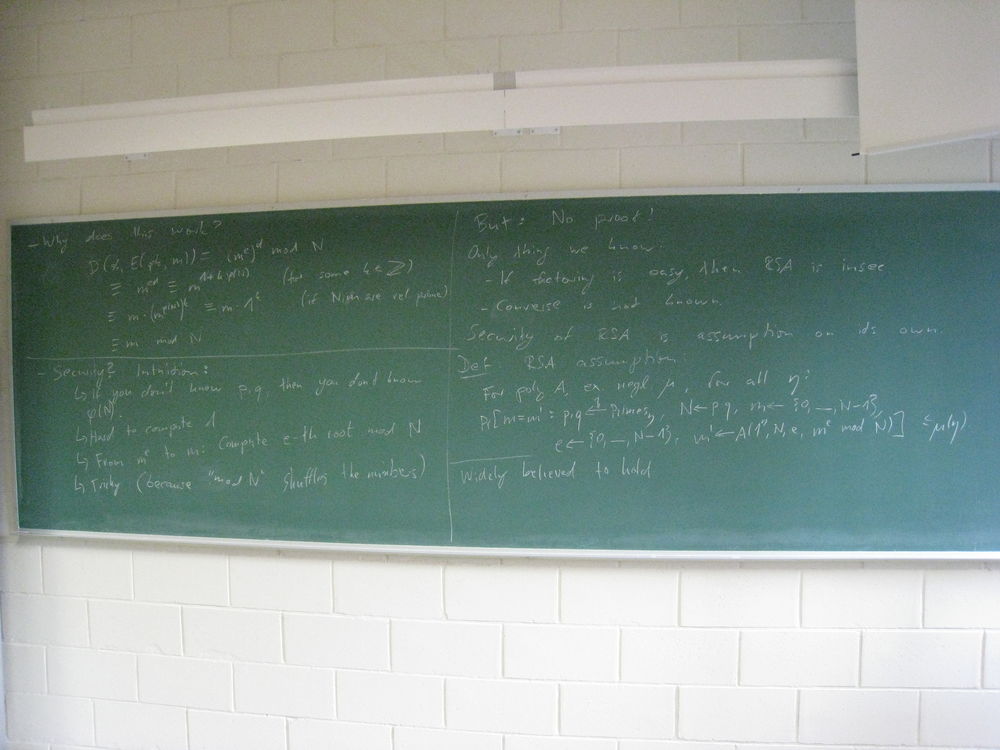 - Why does this work?
D(sk, E(pk, m)) = (m^e)^d mod N
≡ m^{ed} ≡ m^{1+k·φ(N)} (for some k∈ℤ)
≡ m·(m^{φ(N)})^k ≡ m·1^k (if N,m are rel prime)
≡ m mod N
- Security? Intuition:
↳ If you don't know p,q, then you don't know
φ(N).
↳ Hard to compute d
↳ From m^e to m: Compute e-th root mod N
↳ Tricky (because "mod N" shuffles the numbers)
But: No proof!
Only thing we know:
- If factoring is easy, then RSA is insec
- Converse is not known.
Security of RSA is assumption on its own.
Def RSA assumption:
For poly A, ex negl μ, for all η:
Pr[m=m' : p,q ←$ Primes_η, N←p·q, m←{0,…,N-1},
e←{0,…,N-1}, m'←A(1^η, N, e, m^e mod N)] ≤ μ(η).
Widely believed to hold